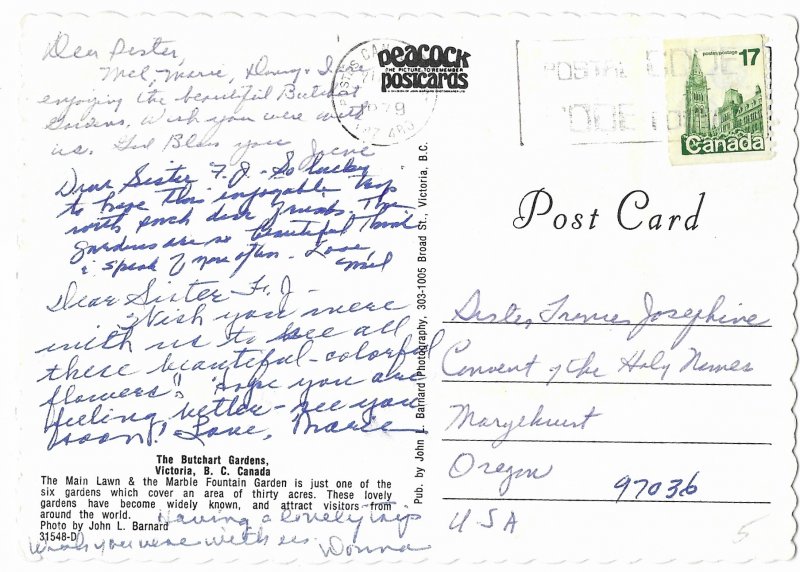 Dear Sister,
Mel, Marie, Donna & I are
enjoying the beautiful Butchart
Gardens. Wish you were with
us. God Bless you
June
Dear Sister F. J. - So lucky
to have this enjoyable trip
with such dear friends. The
gardens are so beautiful
& speak of more often. Love,
Mel
Dear Sister F. J -
Wish you were
with us to see all
these beautiful - colorful
flowers! Hope you are
feeling better - see you
soon! Love, Marie
The Butchart Gardens,
Victoria, B. C. Canada
The Main Lawn & the Marble Fountain Garden is just one of the
six gardens which cover an area of thirty acres. These lovely
gardens have become widely known, and attract visitors from
around the world.
Photo by John L. Barnard
31548-D
Having a lovely trip
Wish you were with us. Donna
peacock
THE PICTURE TO REMEMBER
postcards
Pub. by John L. Barnard Photography, 303-1005 Broad St., Victoria, B.C.
POSTAL CODE
postes/postage
17
Canada
Post Card
Sister Frances Josephine
Convent of the Holy Names
Marylhurst
Oregon 97036
USA
5